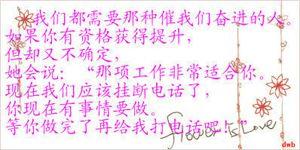 我们都需要那种催我们奋进的人。
如果你有资格获得提升，
但却又不确定，
她会说：“那项工作非常适合你。
现在我们应该挂断电话了，
你现在有事情要做。
等你做完了再给我打电话吧！”
flower is Love
dmb